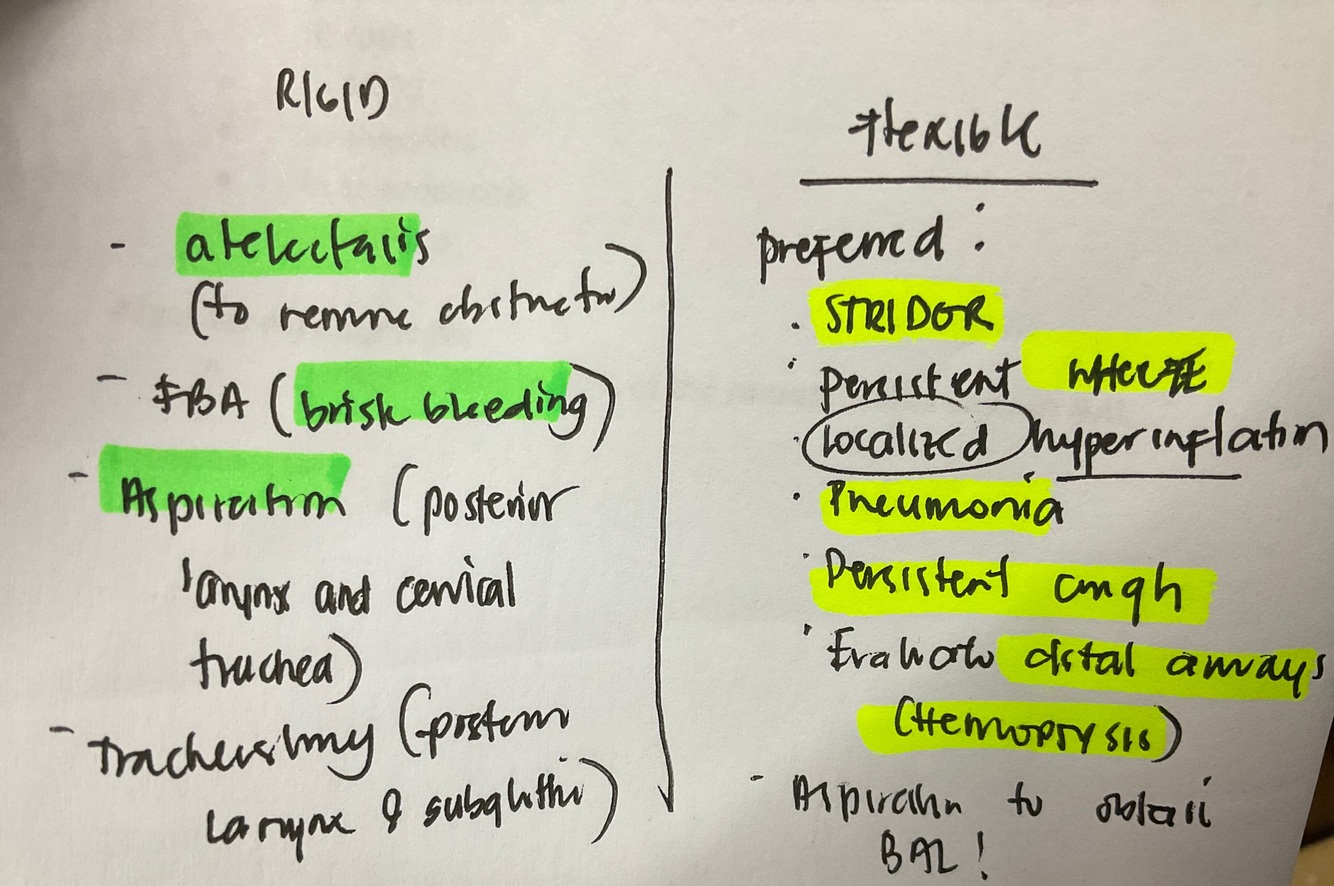 RIGID
- atelectasis
(to remove obstructn)
- FBA (brisk bleeding)
- Aspiration (posterior
larynx and cervical
trachea)
- Tracheostomy (posterior
larynx & subglottic)
Flexible
preferred:
· STRIDOR
· persistent wheeze
· localized hyperinflation
· Pneumonia
· Persistent cough
· Evaluate distal airways
(Hemoptysis)
- Aspiration to obtain
BAL!